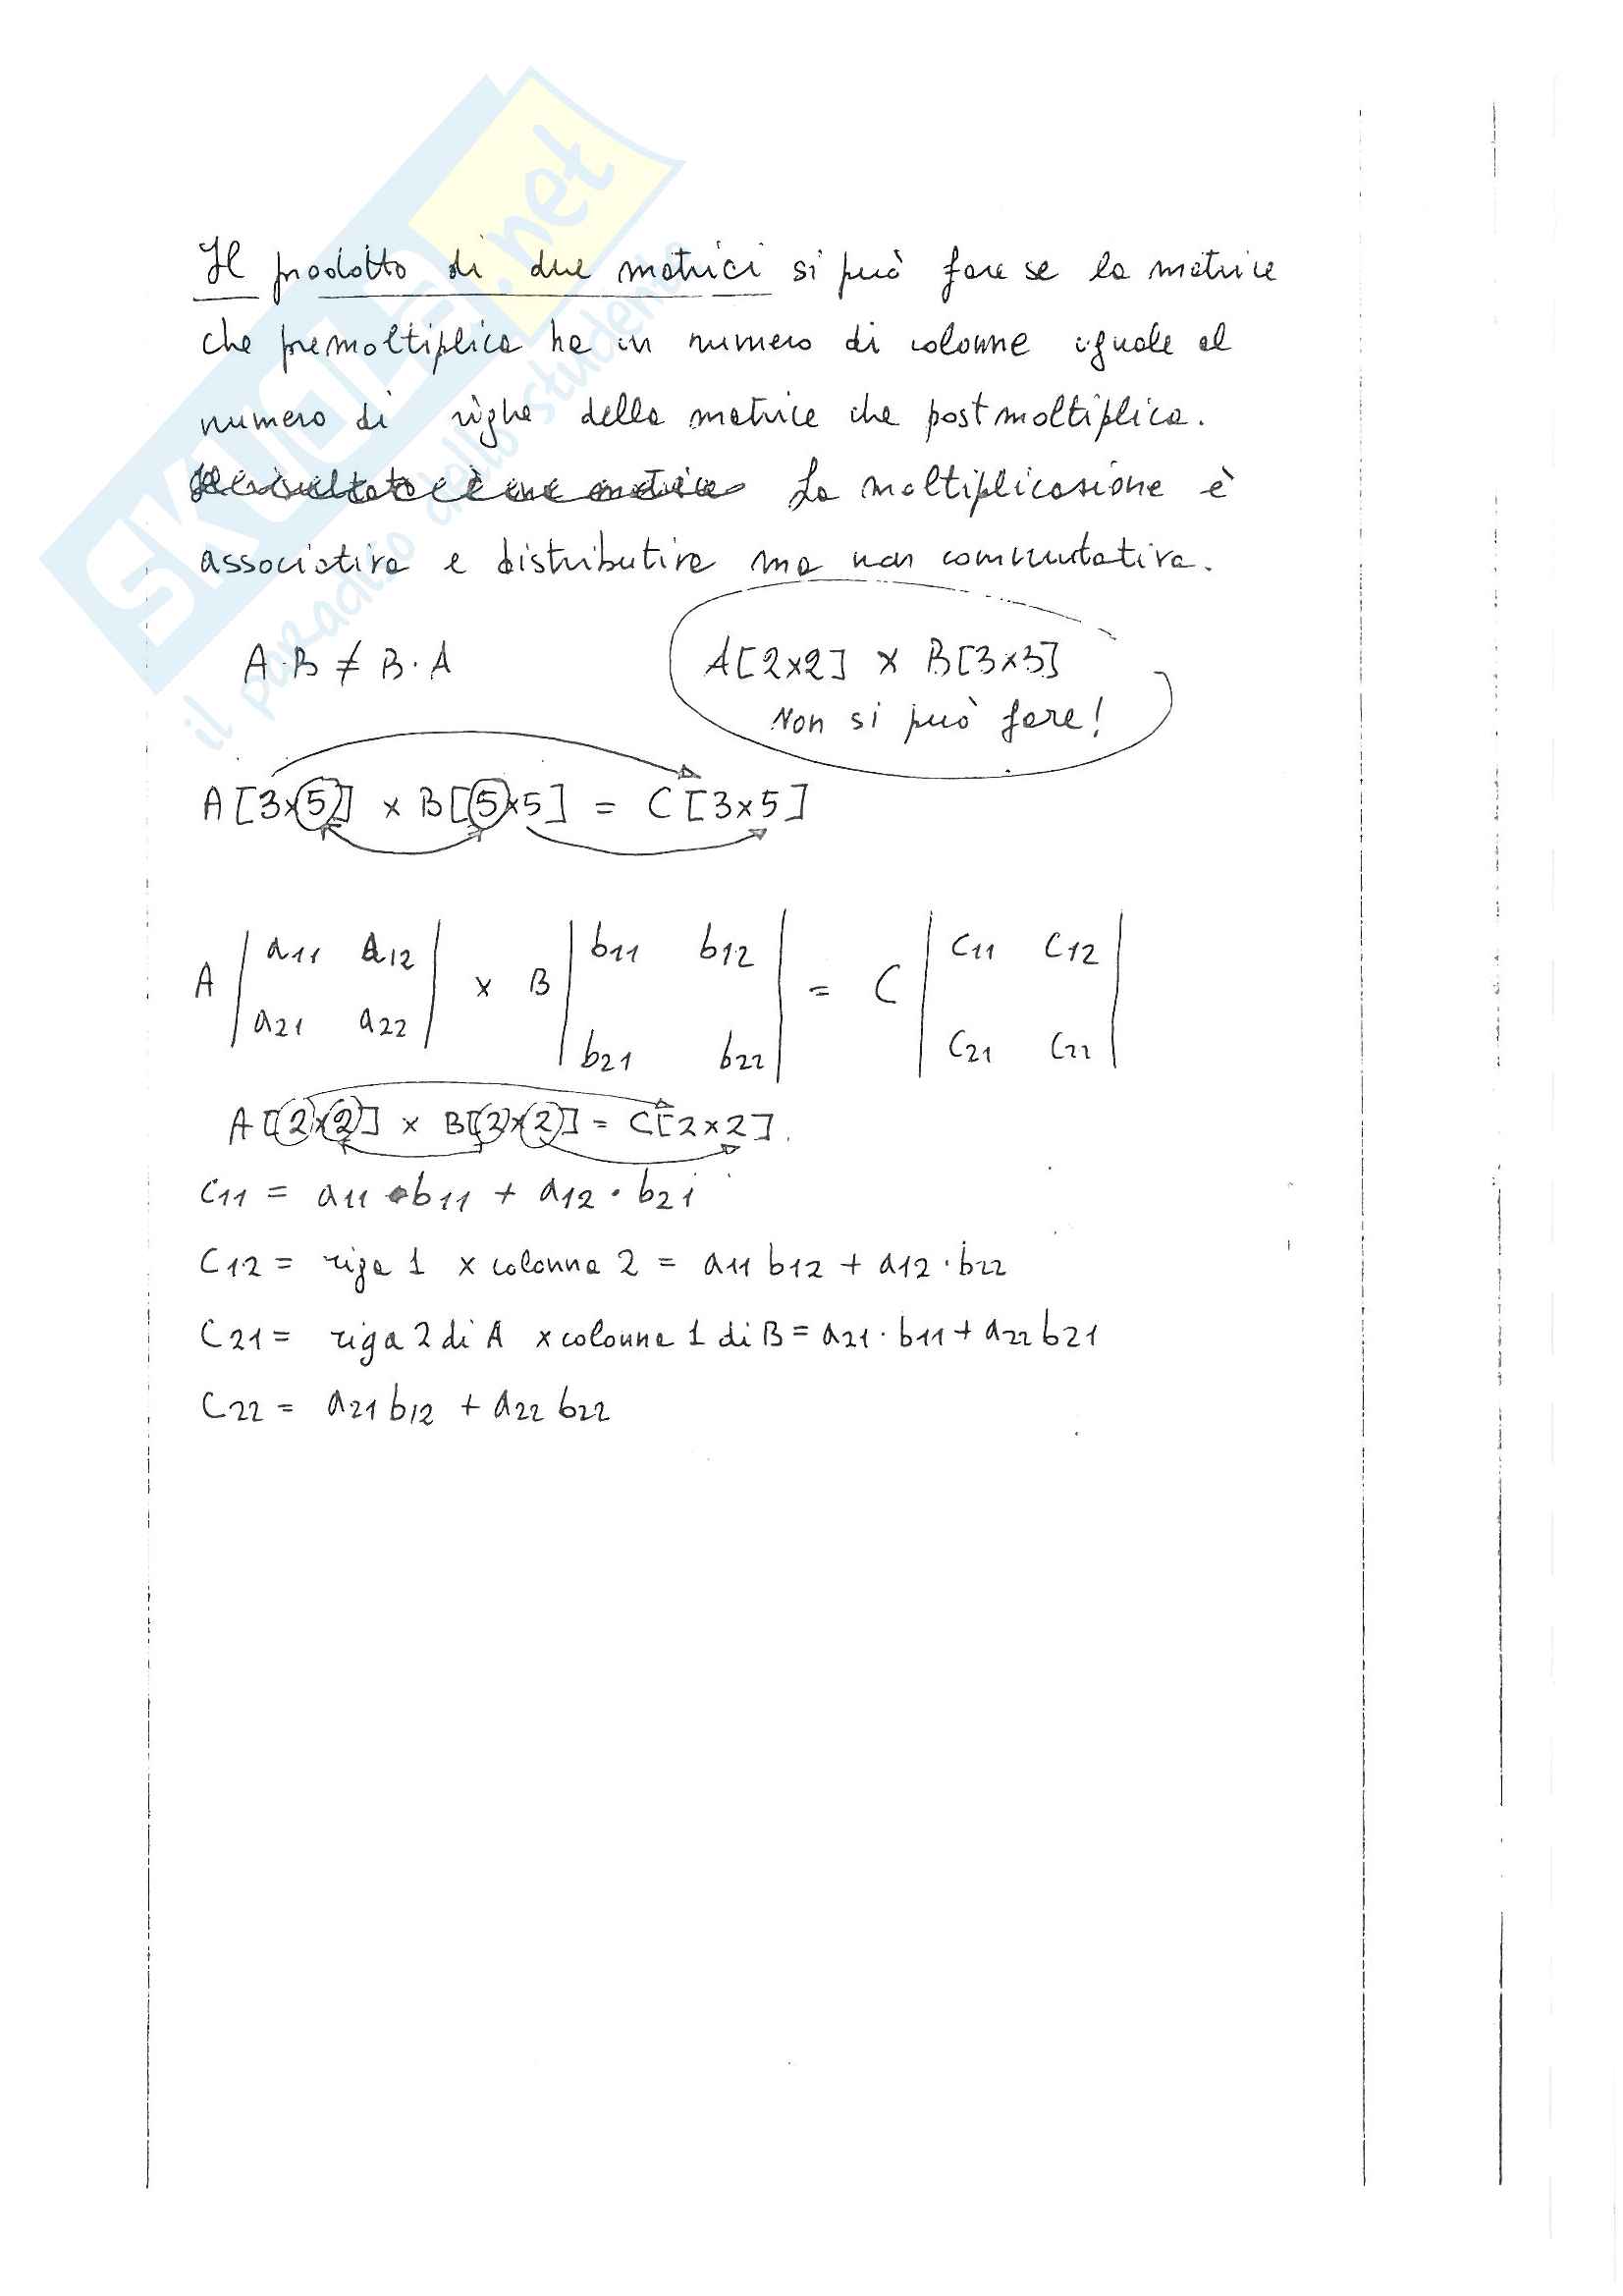 SKUOLA.net
il paradiso dello studente
Il prodotto di due matrici si può fare se la matrice
che premoltiplica ha un numero di colonne uguale al
numero di righe della matrice che postmoltiplica.
Il risultato è una matrice La moltiplicazione è
associativa e distributiva ma non commutativa.
A·B ≠ B·A
A[2x2] x B[3x3]
Non si può fare!
A[3x5] x B[5x5] = C[3x5]
A | a11 a12 | x B | b11 b12 | = C | c11 c12 |
| a21 a22 | | b21 b22 | | c21 c22 |
A[2x2] x B[2x2] = C[2x2].
c11 = a11 · b11 + a12 · b21
c12 = riga 1 x colonna 2 = a11 b12 + a12 · b22
c21 = riga 2 di A x colonna 1 di B = a21 · b11 + a22 b21
c22 = a21 b12 + a22 b22